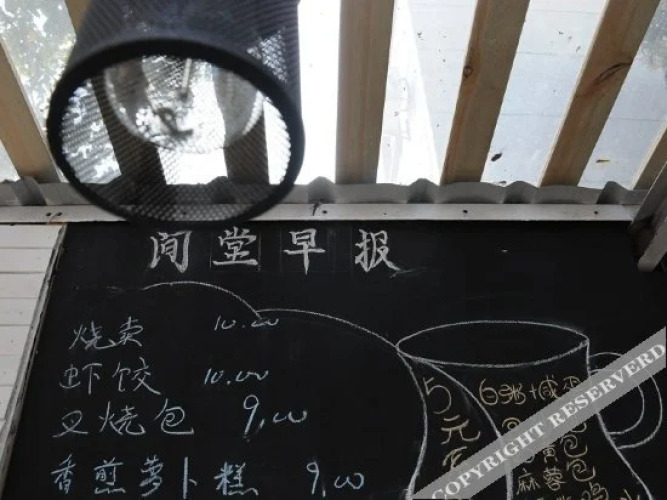 间堂早报
烧卖 10.00
虾饺 10.00
叉烧包 9.00
香煎萝卜糕 9.00
5元
白粥+咸蛋
黄包
麻蓉包
COPYRIGHT RESERVERD